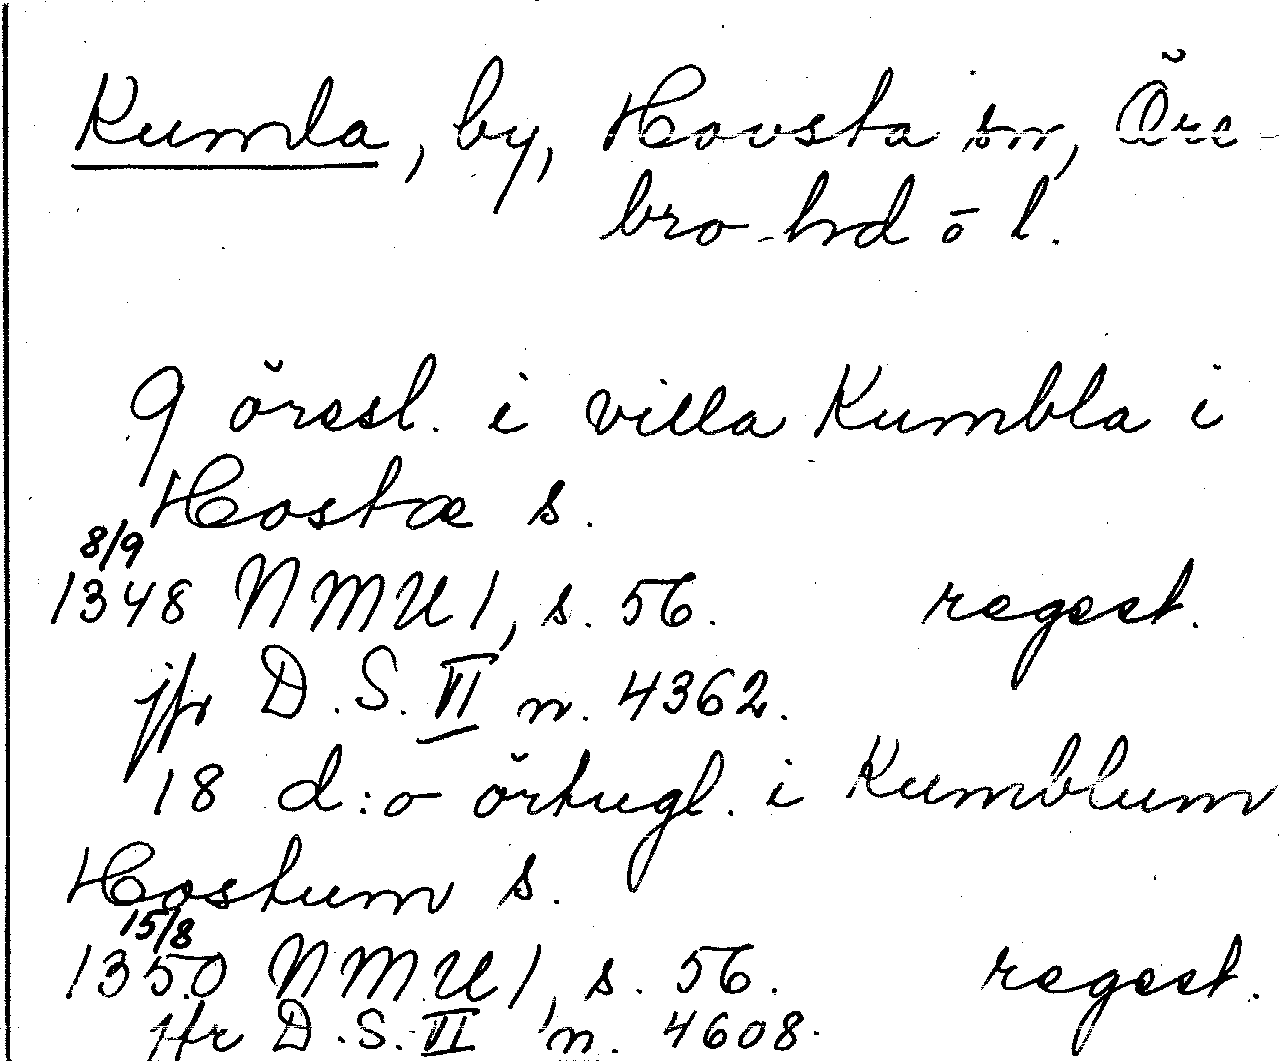 Kumla, by, Hovsta sn, Öre-
bro hd ō l.
9 öresl. i villa Kumbla i
Hostæ s.
8/9
1348 NMU 1, s. 56. regest.
jfr D.S. VI n. 4362.
18 d:o örtugl. i Kumblum
Hostum s.
15/8
1350 NMU 1, s. 56. regest.
jfr D.S. VI n. 4608.